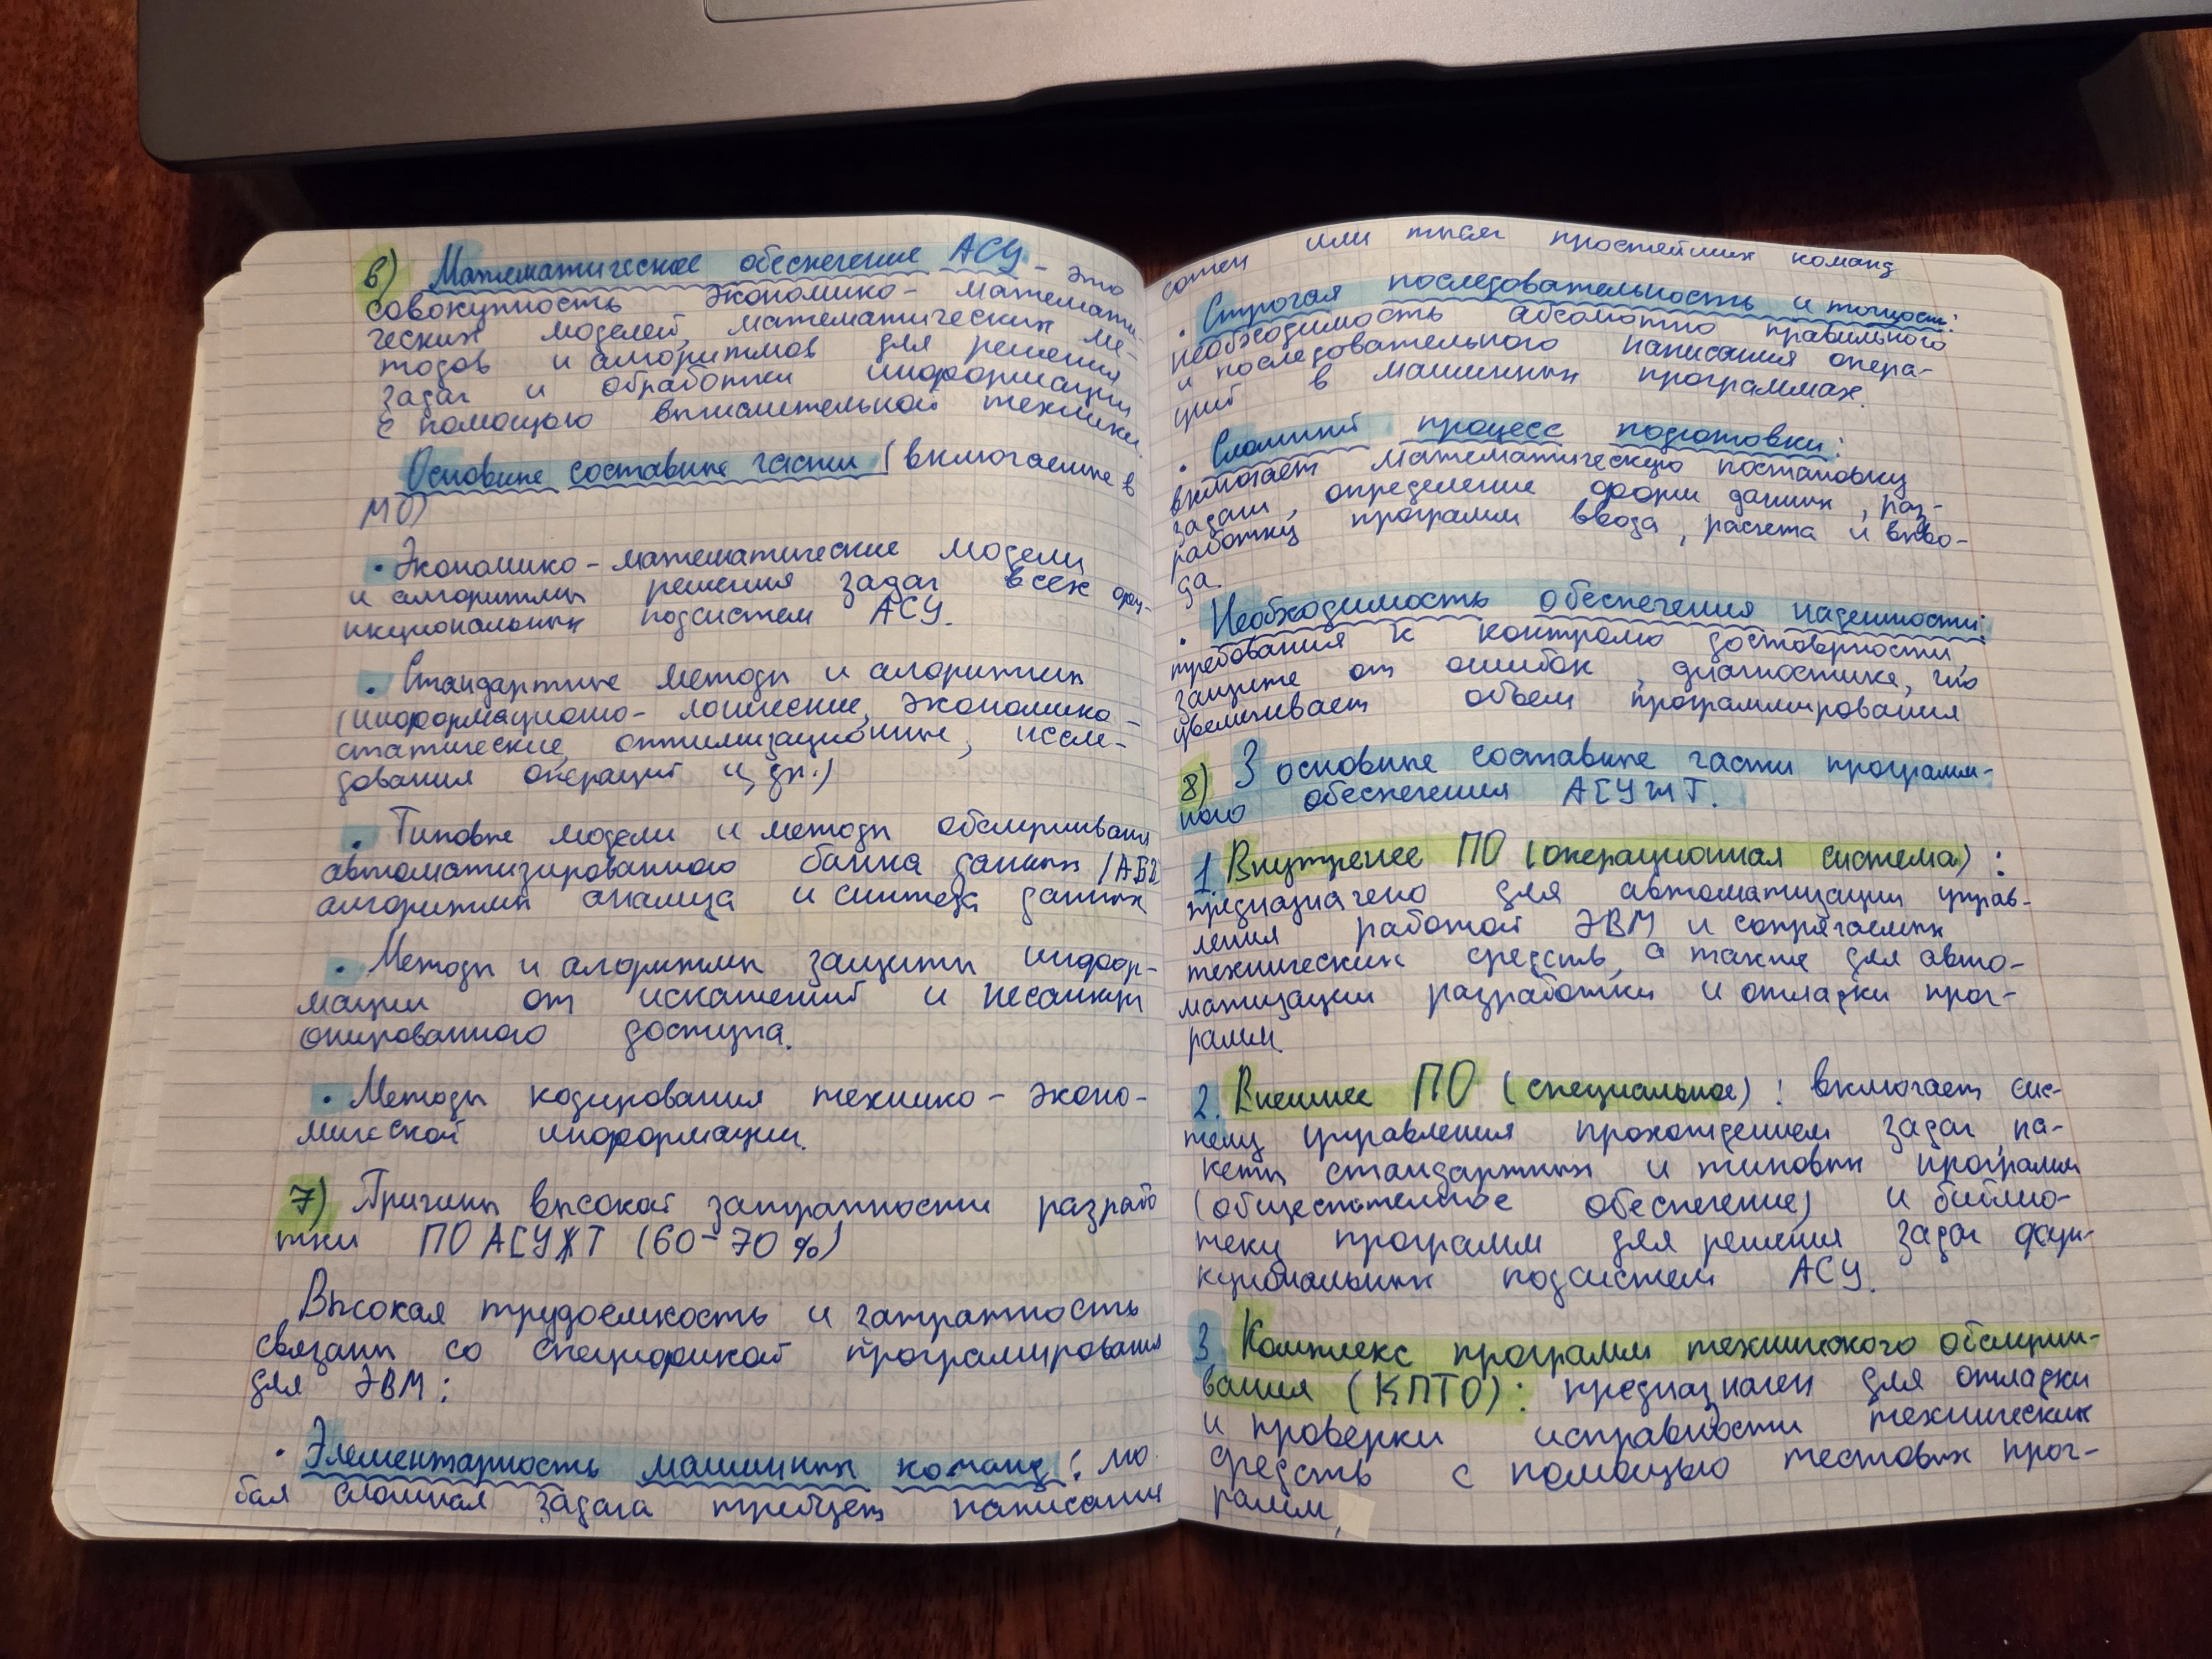 6) Математическое обеспечение АСУ - это
совокупность экономико- математи-
ческих моделей, математических ме-
тодов и алгоритмов для решения
задач и обработки информации
с помощью вычислительной техники.
Основные составные части (включаемые в
МО)
• Экономико-математические модели
и алгоритмы решения задач всех фун-
нкциональных подсистем АСУ.
• Стандартные методы и алгоритмы
(информационно- логические, экономико-
статические, оптимизационные, иссле-
дования операций и др.)
• Типовые модели и методы обслуживания
автоматизированного банка данных (АБД
алгоритмы анализа и синтеза данных
• Методы и алгоритмы защиты инфор-
мации от искажений и несанкци
онированного доступа.
• Методы кодирования технико- эконо-
мической информации.
7) Причины высокой затратности разрабо
тки ПО АСУЖТ (60-70%)
Высокая трудоемкость и затратность
связаны со спецификой программирования
для ЭВМ:
• Элементарность машинных команд: лю
бая сложная задача требует написания
сотен или тысяч простейших команд
• Строгая последовательность и точность:
необходимость абсолютно правильного
и последовательного написания опера-
ций в машинных программах.
• Сложный процесс подготовки:
включает математическую постановку
задачи, определение форм данных, раз-
работку программ ввода, расчета и выво-
да.
• Необходимость обеспечения надежности:
требования к контролю достоверности,
защите от ошибок, диагностике, что
увеличивает объем программирования
8) 3 основные составные части программ-
ного обеспечения АСУЖТ.
1. Внутренее ПО (операционная система):
предназначено для автоматизации управ-
ления работой ЭВМ и сопрягаемых
технических средств, а также для авто-
матизации разработки и отладки прог-
рамм.
2. Внешнее ПО (специальное): включает сис-
тему управления прохождением задач, па-
кеты стандартных и типовых программ
(общесистемное обеспечение) и библио-
теку программ для решения задач фун-
кциональных подсистем АСУ.
3 Комплекс программ технического обслужи-
вания (КПТО): предназначен для отладки
и проверки исправности технических
средств с помощью тестовых прог-
рамм.